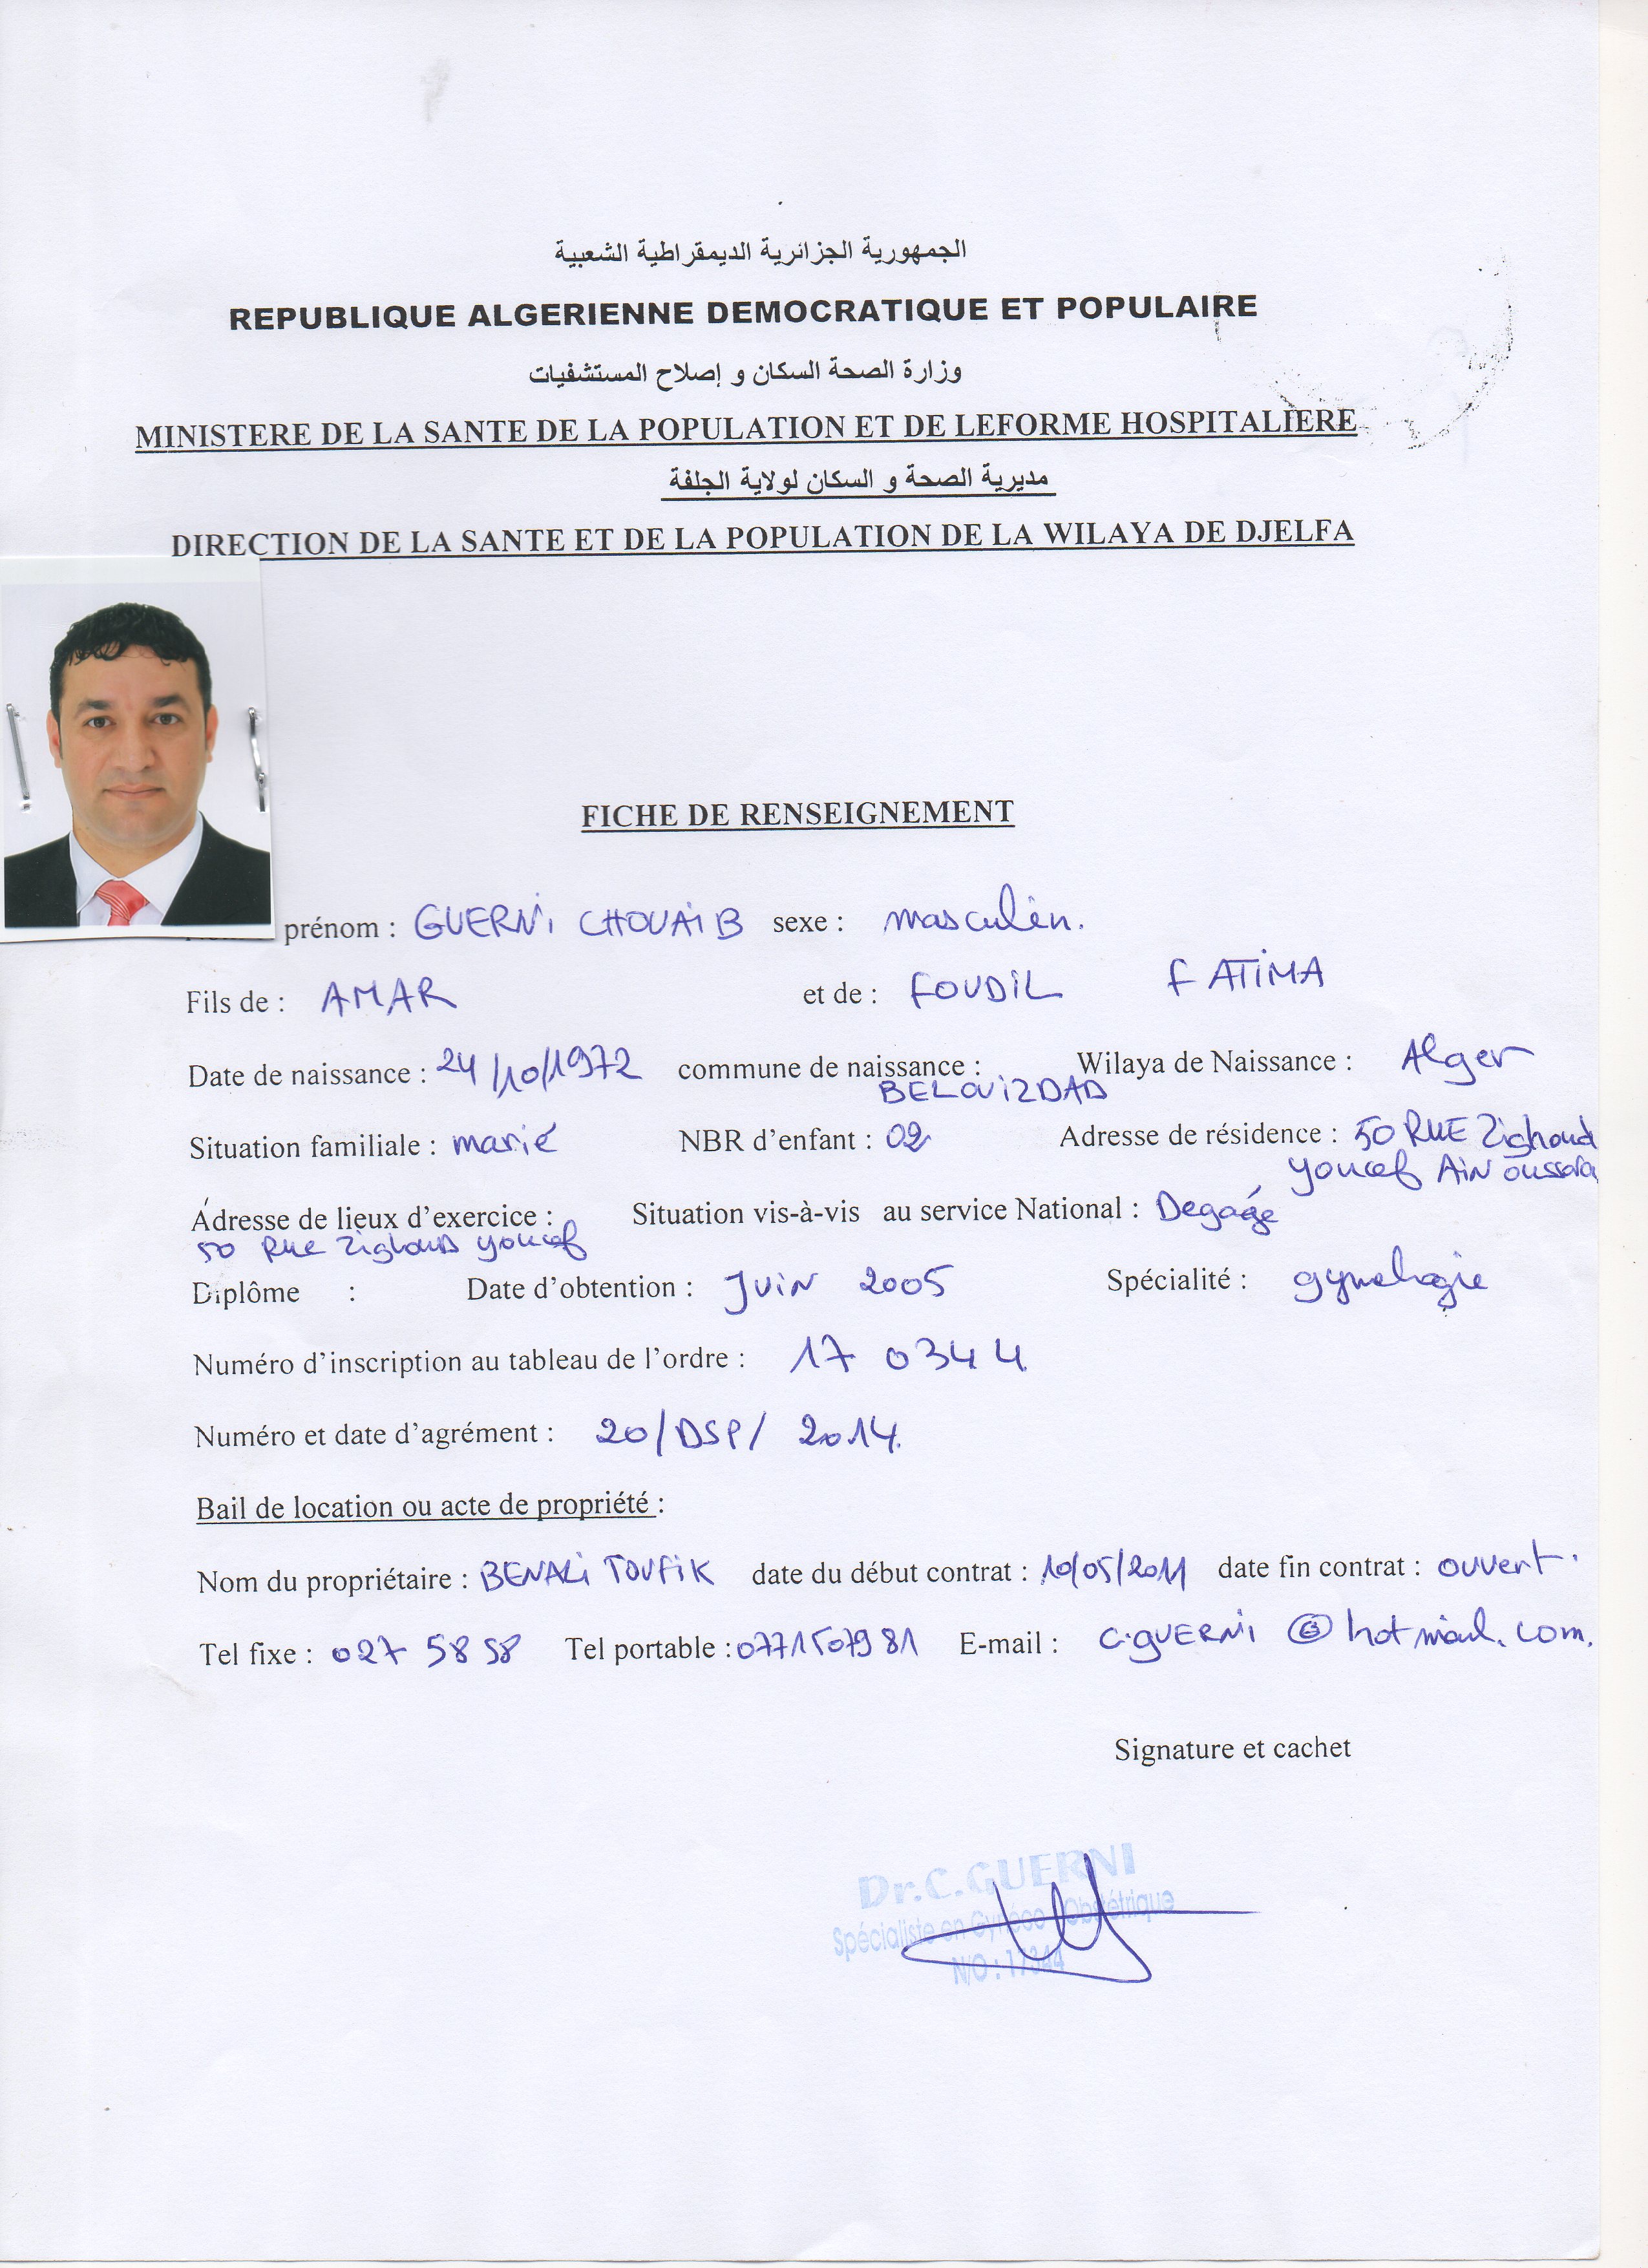 الجمهورية الجزائرية الديمقراطية الشعبية
REPUBLIQUE ALGERIENNE DEMOCRATIQUE ET POPULAIRE
وزارة الصحة السكان و إصلاح المستشفيات
MINISTERE DE LA SANTE DE LA POPULATION ET DE LEFORME HOSPITALIERE
مديرية الصحة و السكان لولاية الجلفة
DIRECTION DE LA SANTE ET DE LA POPULATION DE LA WILAYA DE DJELFA
FICHE DE RENSEIGNEMENT
prénom : GUERNI CHOUAIB sexe : masculin.
Fils de : AMAR et de : FOUDIL FATIMA
Date de naissance : 24/10/1972 commune de naissance : Wilaya de Naissance : Alger
BELOUIZDAD
Situation familiale : marié NBR d'enfant : 02 Adresse de résidence : 50 RUE Zighoud
youcef AIN oussera
Adresse de lieux d'exercice : Situation vis-à-vis au service National : Degagé
50 Rue Zighoud youcef
Diplôme : Date d'obtention : JUIN 2005 Spécialité :
Numéro d'inscription au tableau de l'ordre : 17 0344
Numéro et date d'agrément : 20/DSP/ 2014.
Bail de location ou acte de propriété :
Nom du propriétaire : BENALI TOUFIK date du début contrat : 10/05/2011 date fin contrat : ouvert.
Tel fixe : 027 58 58 Tel portable : 0771507981 E-mail : C.GUERNI @ hotmail.com.
Signature et cachet
Dr.C.GUERNI
Spécialiste en Gynéco Obstétrique
N/O : 17344